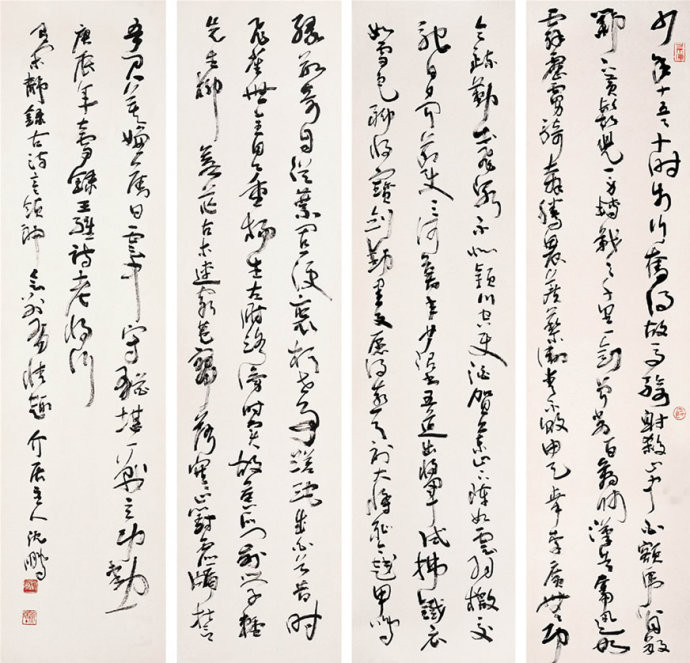 少年十五二十時步行奪得胡馬騎射殺山中白額虎肯數
鄴下黃鬚兒一身轉戰三千里一劍曾當百萬師漢兵奮迅如
霹靂虜騎奔騰畏蒺藜衛青不敗由天幸李廣無功
令疏勒出飛泉不似潁川空使酒賀蘭山下陣如雲羽檄交
馳日夕聞節使三河募年少詔書五道出將軍試拂鐵衣
如雪色聊持寶劍動星文願得燕弓射大將恥令越甲鳴
緣數奇自從棄置便衰朽世事蹉跎成白首昔時
飛雀無全目今日垂楊生左肘路旁時賣故侯瓜門前學種
先生柳蒼茫古木連窮巷寥落寒山對虛牖誓
吾君莫嫌舊日雲中守猶堪一戰立功勳
庚辰年書錄王維詩老將行
靜錄古詩介居主人沈鵬